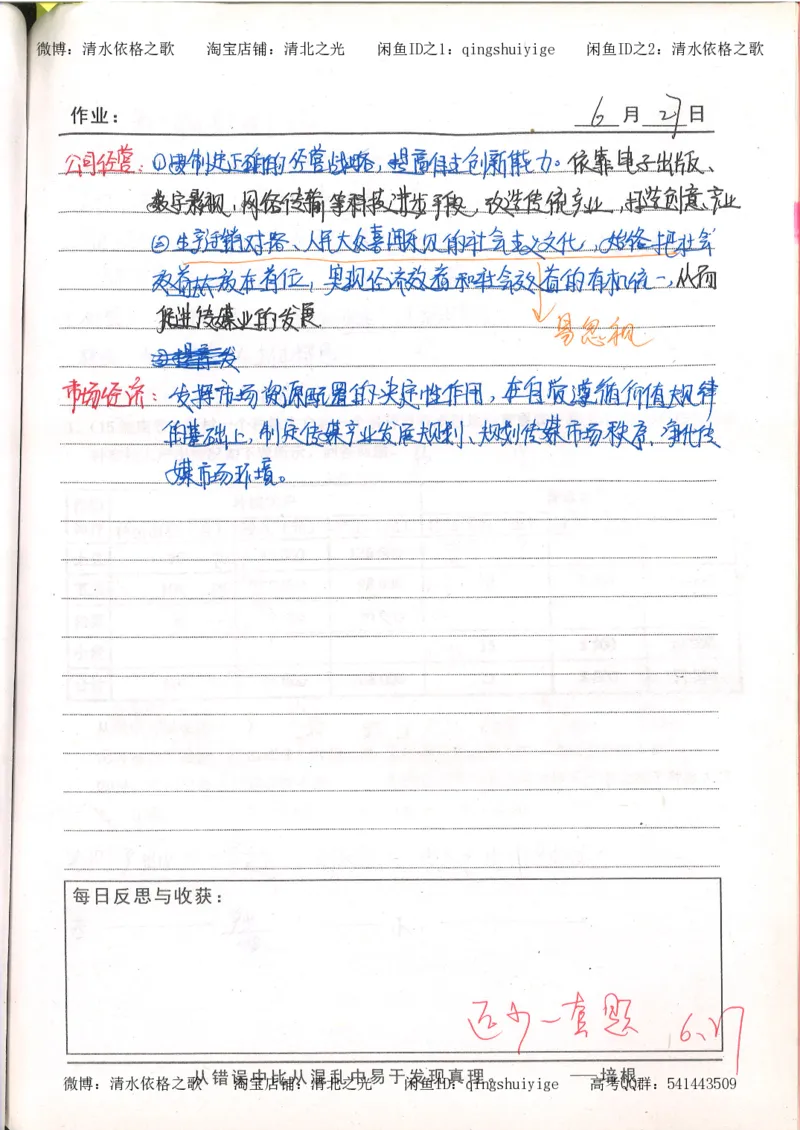 微博：清水依格之歌 淘宝店铺：清北之光 闲鱼ID之1：qingshuiyige 闲鱼ID之2：清水依格之歌
作业： 6月27日
公司经营：①要制定正确的经营战略，提高自主创新能力。依靠电子出版、
数字影视、网络传输等科技进步手段，改造传统产业，打造创意产业
②生产适销对路、人民大众喜闻乐见的社会主义文化，始终把社会
效益放在首位，实现经济效益和社会效益的有机统一，从而
促进传媒业的发展
易忽视
市场经济：发挥市场资源配置的决定性作用，在自觉遵循价值规律
的基础上，制定传媒产业发展规划、规划传媒市场秩序、净化传
媒市场环境。
每日反思与收获：
还少一套题 6.27
从错误中比从混乱中易于发现真理。 ——培根
微博：清水依格之歌 淘宝店铺：清北之光 闲鱼ID：qingshuiyige 高考QQ群：541443509